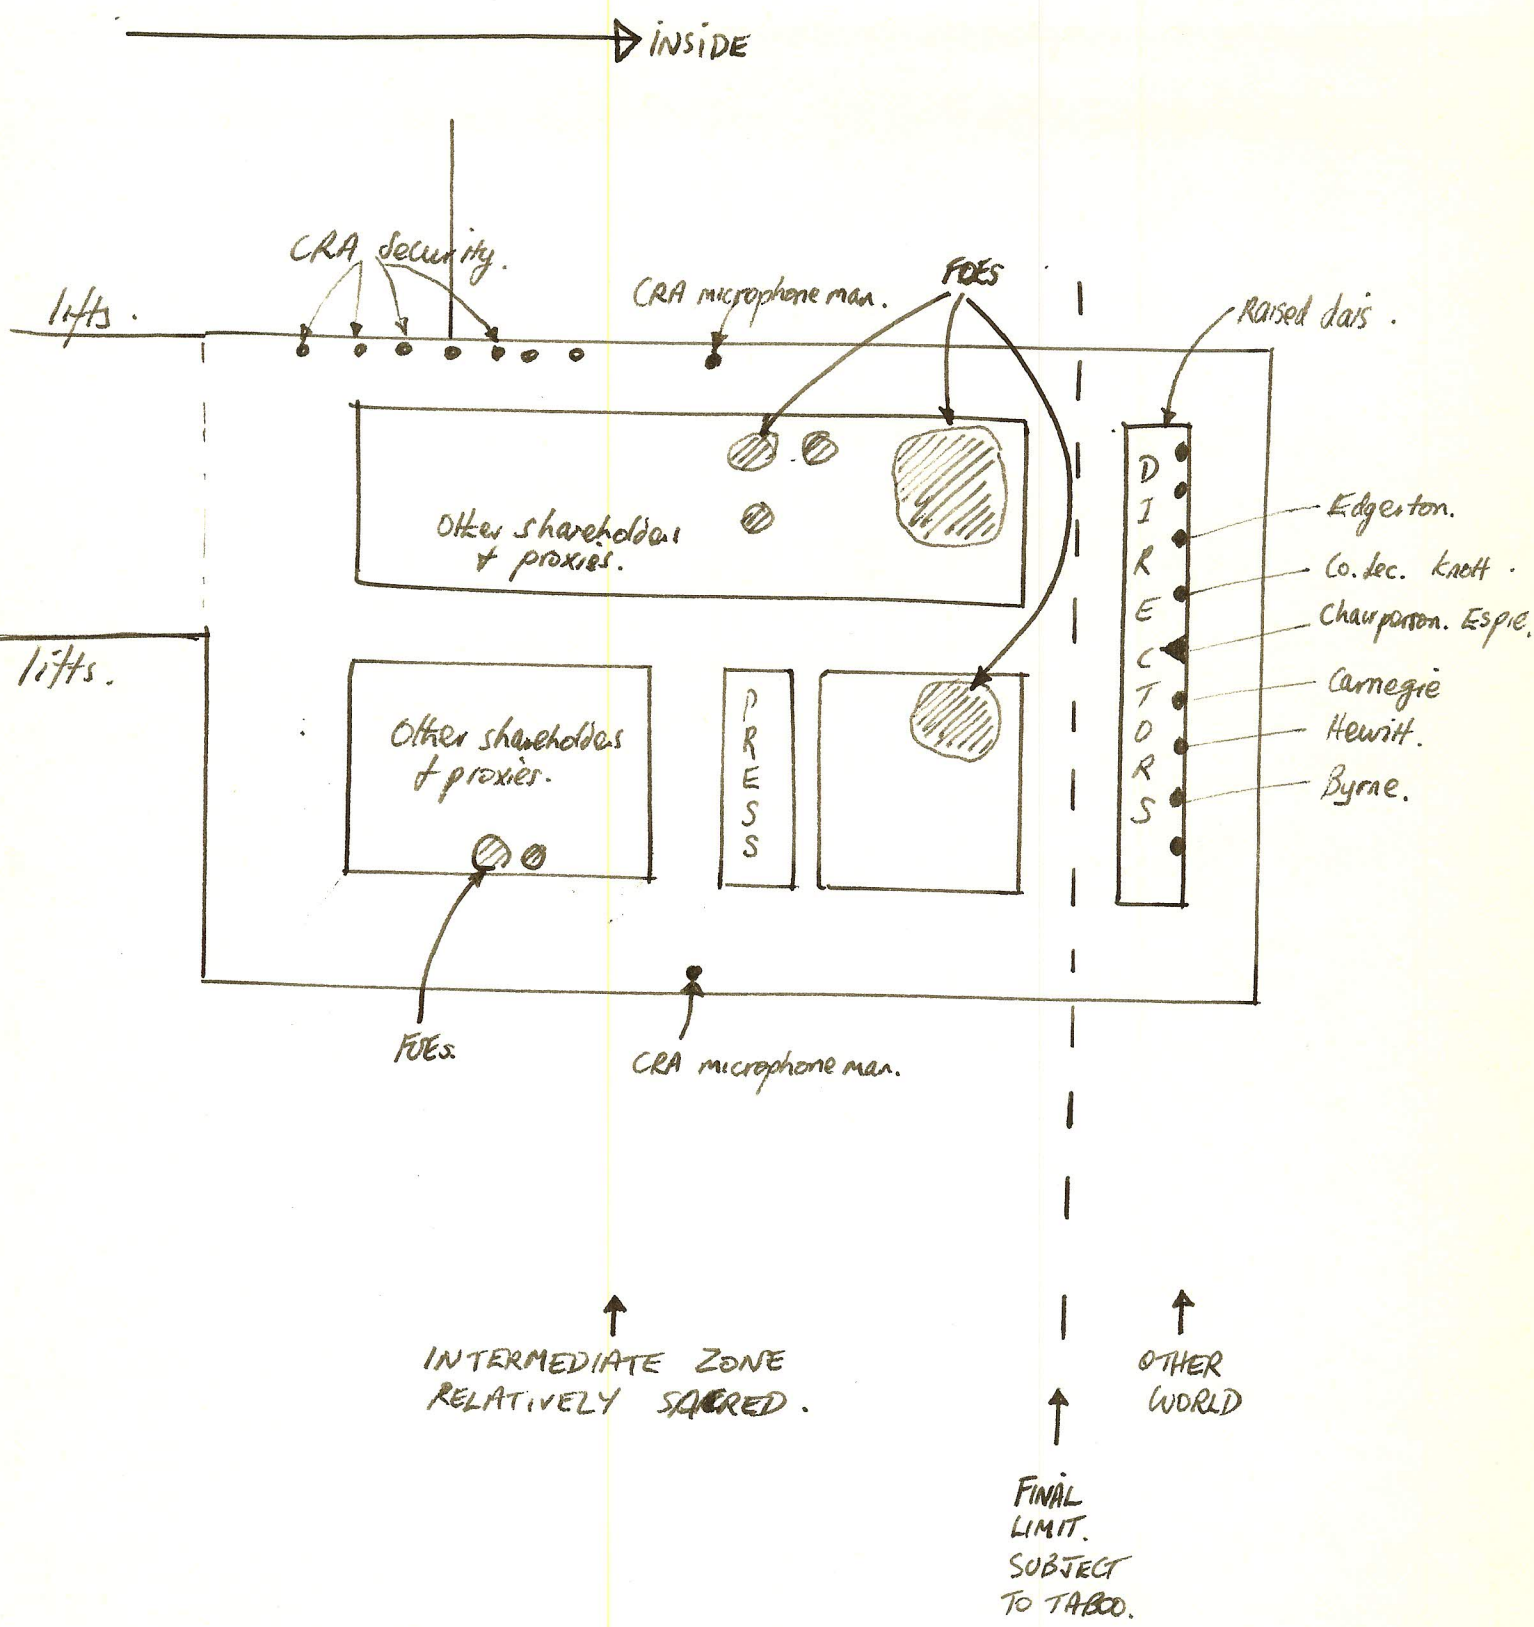 INSIDE
CRA Security.
lifts.
CRA microphone man.
FOES
Raised dais.
Other shareholders
+ proxies.
DIRECTORS
Edgerton.
Co. Sec. Knott.
Chairperson. Espie.
Carnegie
Hewitt.
Byrne.
lifts.
Other shareholders
+ proxies.
PRESS
FOEs.
CRA microphone man.
INTERMEDIATE ZONE
RELATIVELY SACRED.
OTHER
WORLD
FINAL
LIMIT.
SUBJECT
TO TABOO.